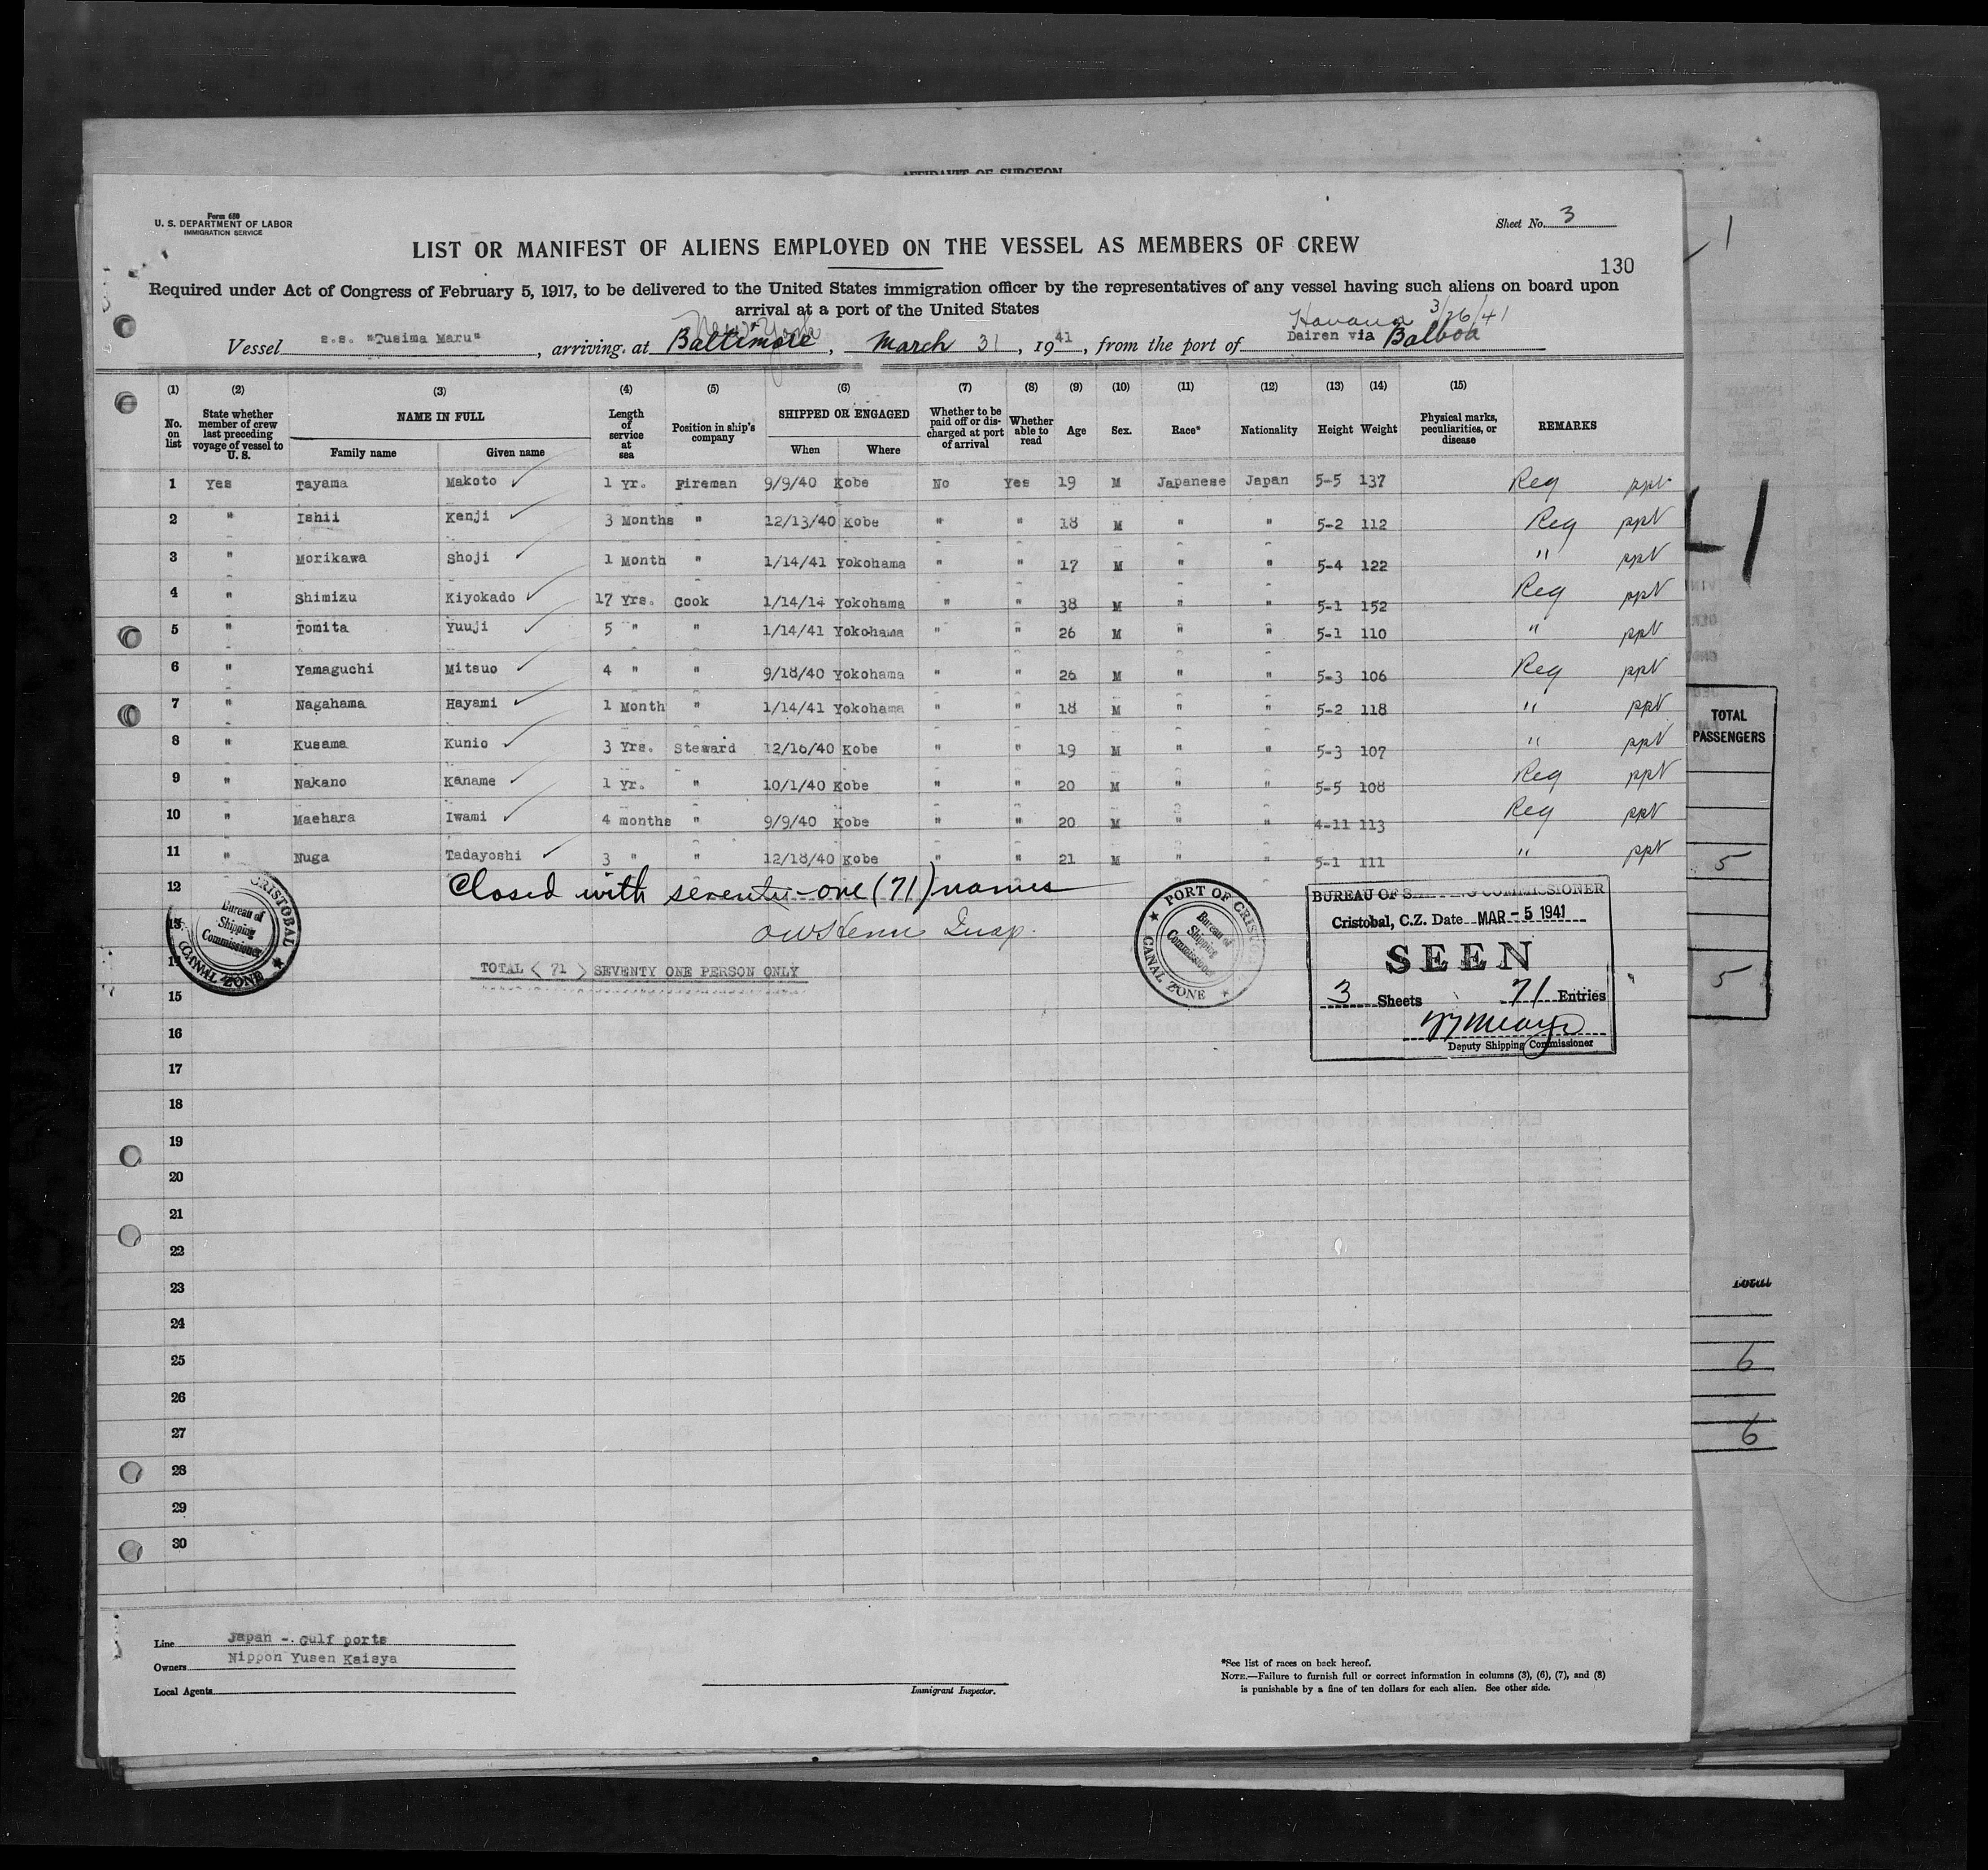 AFFIDAVIT OF SURGEON
Form 680
U. S. DEPARTMENT OF LABOR
IMMIGRATION SERVICE
Sheet No. 3
LIST OR MANIFEST OF ALIENS EMPLOYED ON THE VESSEL AS MEMBERS OF CREW
130
Required under Act of Congress of February 5, 1917, to be delivered to the United States immigration officer by the representatives of any vessel having such aliens on board upon
arrival at a port of the United States
New York
Havana 3/26/41
Vessel s.s. "Tusima Maru", arriving at Baltimore, March 31, 1941, from the port of Dairen via Balboa
(1) (2) (3) (4) (5) (6) (7) (8) (9) (10) (11) (12) (13) (14) (15)
No. on list
State whether member of crew last preceding voyage of vessel to U. S.
NAME IN FULL
Family name Given name
Length of service at sea
Position in ship's company
SHIPPED OR ENGAGED
When Where
Whether to be paid off or discharged at port of arrival
Whether able to read
Age
Sex.
Race*
Nationality
Height
Weight
Physical marks, peculiarities, or disease
REMARKS
1 Yes Tayama Makoto 1 Yr. Fireman 9/9/40 Kobe No Yes 19 M Japanese Japan 5-5 137 Reg ppt
2 " Ishii Kenji 3 Months " 12/13/40 Kobe " " 18 M " " 5-2 112 Reg ppt
3 " Morikawa Shoji 1 Month " 1/14/41 Yokohama " " 17 M " " 5-4 122 " ppt
4 " Shimizu Kiyokado 17 Yrs. Cook 1/14/14 Yokohama " " 38 M " " 5-1 152 Reg ppt
5 " Tomita Yuuji 5 " " 1/14/41 Yokohama " " 26 M " " 5-1 110 " ppt
6 " Yamaguchi Mitsuo 4 " " 9/18/40 Yokohama " " 26 M " " 5-3 106 Reg ppt
7 " Nagahama Hayami 1 Month " 1/14/41 Yokohama " " 18 M " " 5-2 118 " ppt
8 " Kusama Kunio 3 Yrs. Steward 12/16/40 Kobe " " 19 M " " 5-3 107 " ppt
9 " Nakano Kaname 1 Yr. " 10/1/40 Kobe " " 20 M " " 5-5 108 Reg ppt
10 " Maehara Iwami 4 months " 9/9/40 Kobe " " 20 M " " 4-11 113 Reg ppt
11 " Nuga Tadayoshi 3 " " 12/18/40 Kobe " " 21 M " " 5-1 111 " ppt
12 Closed with seventy-one (71) names
13 Insp.
14 TOTAL < 71 > SEVENTY ONE PERSON ONLY
15
16
17
18
19
20
21
22
23
24
25
26
27
28
29
30
CRISTOBAL
Bureau of
Shipping
Commissioner
CANAL ZONE
PORT OF CRISTOBAL
Bureau of
Shipping
Commissioner
CANAL ZONE
BUREAU OF SHIPPING COMMISSIONER
Cristobal, C.Z. Date MAR - 5 1941
SEEN
3 Sheets 71 Entries
Deputy Shipping Commissioner
1
1
TOTAL
PASSENGERS
5
5
TOTAL
6
6
Line Japan - Gulf ports
Owners Nippon Yusen Kaisya
Local Agents
Immigrant Inspector.
*See list of races on back hereof.
NOTE.—Failure to furnish full or correct information in columns (3), (6), (7), and (8)
is punishable by a fine of ten dollars for each alien. See other side.